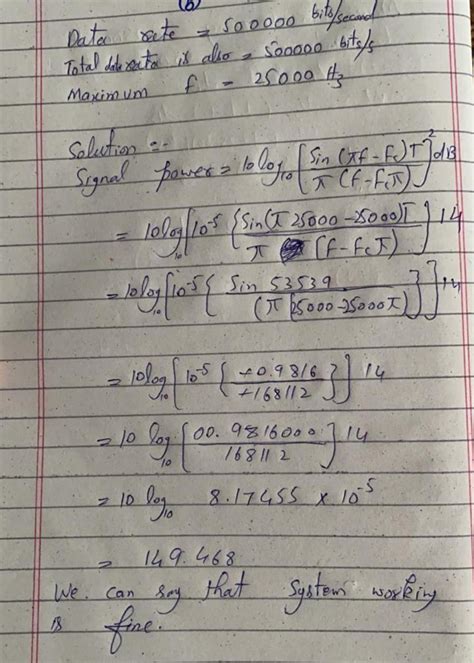 (b)
Data rate = 500000 bits/second
Total data rate is also = 500000 bits/s
Maximum f = 25000 Hz
Solution :-
Signal power = 10log10 [Sin (πf - Fc)T / π (f - fcπ)]^2 dB
= 10log10 [10^-5 {Sin(π 25000 - 25000)T / π (f - fcπ)}] 14
= 10log10 [10^-5 { Sin 53539 / (π [25000 - 25000π) }] 14
= 10log10 [10^-5 { +0.9816 / +168112 }] 14
= 10 log10 [00.9816000 / 168112] 14
= 10 log10 8.17455 × 10^-5
= 149.468
We can say that system working
is fine.